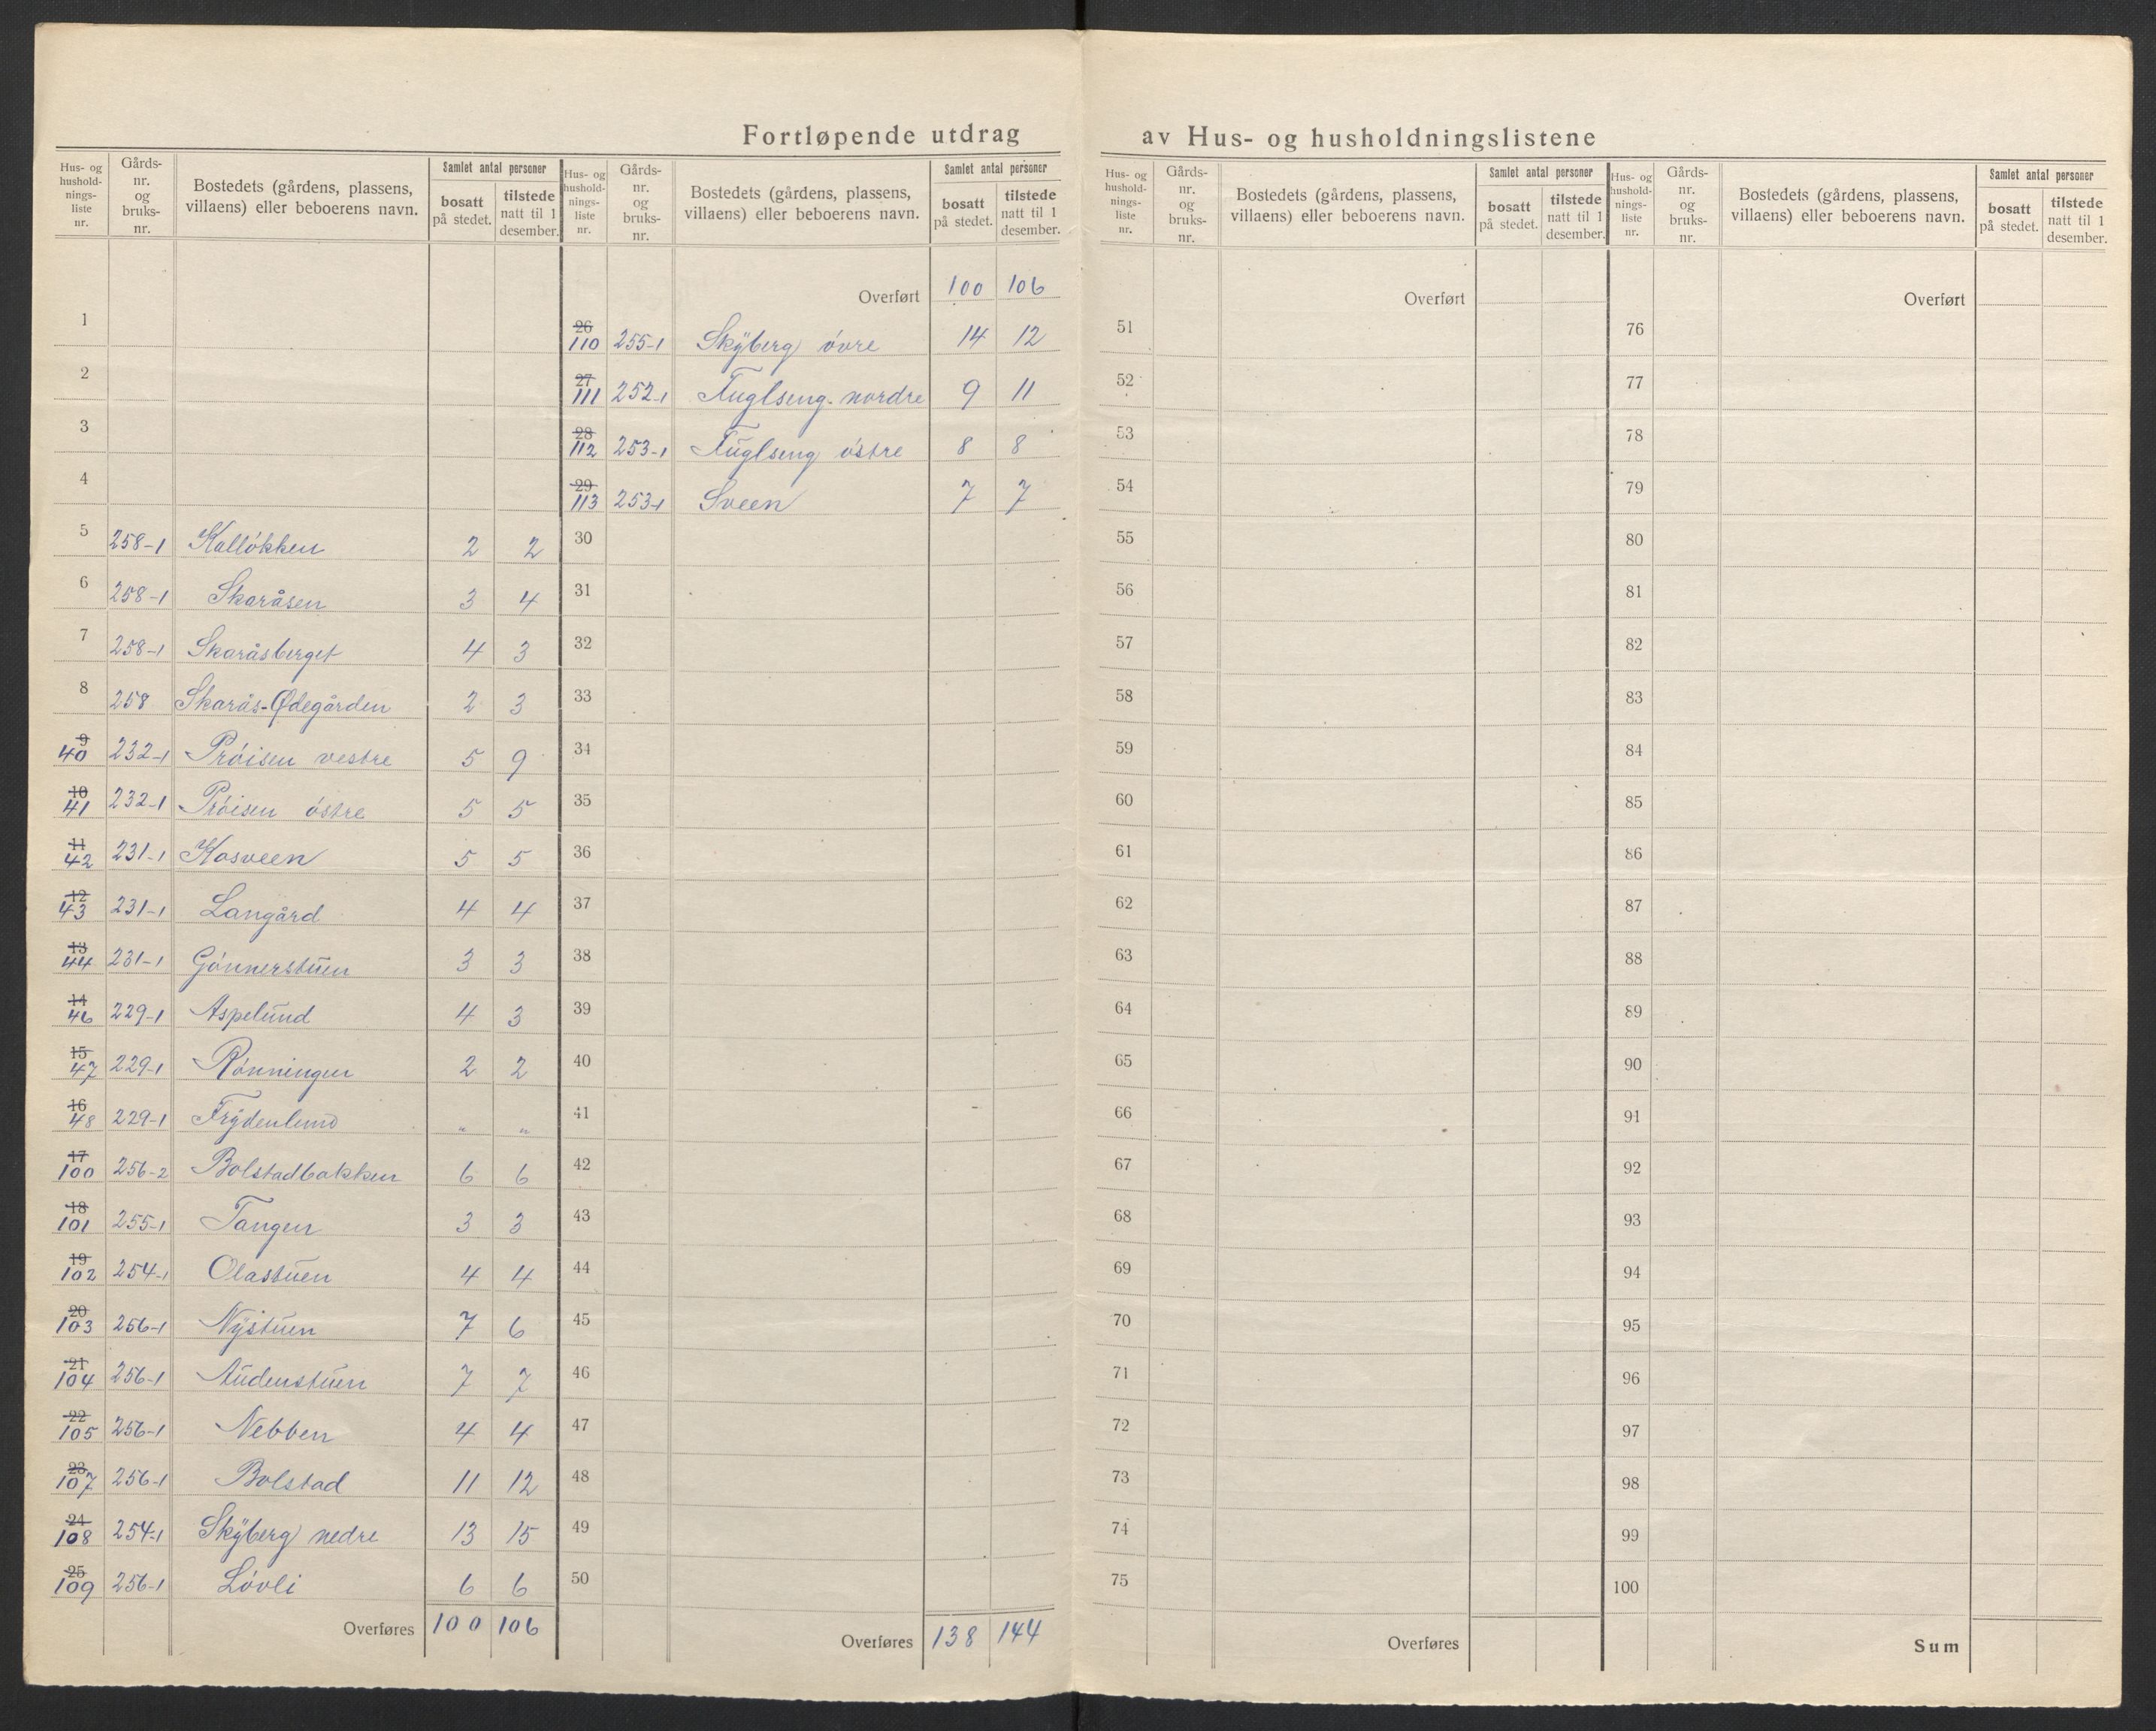 Fortløpende utdrag av Hus- og husholdningslistene
Hus- og husholdnings-liste nr. Gårds-nr. og bruks-nr. Bostedets (gårdens, plassens, villaens) eller beboerens navn. Samlet antal personer bosatt på stedet. tilstede natt til 1 desember.
1
2
3
4
5 258-1 Kalløkken 2 2
6 258-1 Skaråsen 3 4
7 258-1 Skaråsberget 4 3
8 258 Skarås-Ødegården 2 3
9 40 232-1 Prøisen vestre 5 9
10 41 232-1 Prøisen østre 5 5
11 42 231-1 Kosveen 5 5
12 43 231-1 Langård 4 4
13 44 231-1 Gønnerstuen 3 3
14 46 229-1 Aspelund 4 3
15 47 229-1 Rønningen 2 2
16 48 229-1 Frydenlund " "
17 100 256-2 Bolstadbakken 6 6
18 101 255-1 Tangen 3 3
19 102 254-1 Olastuen 4 4
20 103 256-1 Nystuen 7 6
21 104 256-1 Audenstuen 7 7
22 105 256-1 Nebben 4 4
23 107 256-1 Bolstad 11 12
24 108 254-1 Skyberg nedre 13 15
25 109 256-1 Løvli 6 6
Overføres 100 106
Hus- og husholdnings-liste nr. Gårds-nr. og bruks-nr. Bostedets (gårdens, plassens, villaens) eller beboerens navn. Samlet antal personer bosatt på stedet. tilstede natt til 1 desember.
Overført 100 106
26 110 255-1 Skyberg øvre 14 12
27 111 252-1 Fuglseng nordre 9 11
28 112 253-1 Fuglseng østre 8 8
29 113 253-1 Sveen 7 7
30
31
32
33
34
35
36
37
38
39
40
41
42
43
44
45
46
47
48
49
50
Overføres 138 144
Hus- og husholdnings-liste nr. Gårds-nr. og bruks-nr. Bostedets (gårdens, plassens, villaens) eller beboerens navn. Samlet antal personer bosatt på stedet. tilstede natt til 1 desember.
Overført
51
52
53
54
55
56
57
58
59
60
61
62
63
64
65
66
67
68
69
70
71
72
73
74
75
Overføres
Hus- og husholdnings-liste nr. Gårds-nr. og bruks-nr. Bostedets (gårdens, plassens, villaens) eller beboerens navn. Samlet antal personer bosatt på stedet. tilstede natt til 1 desember.
Overført
76
77
78
79
80
81
82
83
84
85
86
87
88
89
90
91
92
93
94
95
96
97
98
99
100
Sum